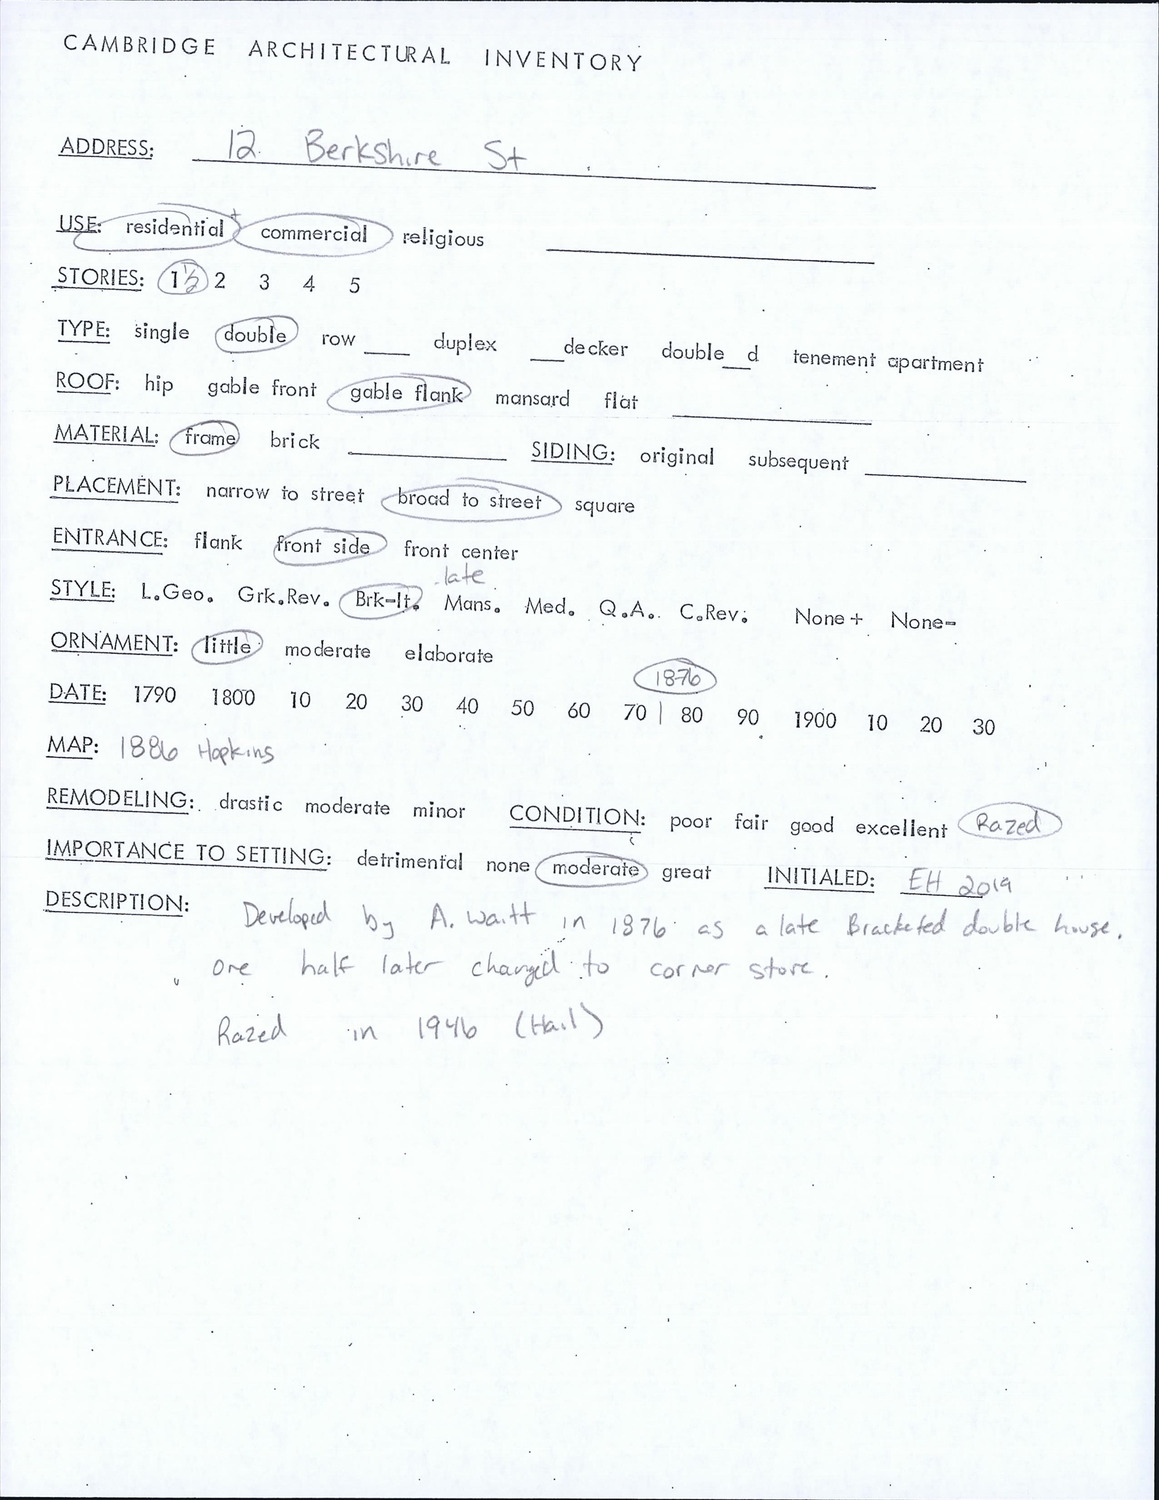 CAMBRIDGE ARCHITECTURAL INVENTORY
ADDRESS: 12 Berkshire St
USE: residential + commercial religious
STORIES: 1 1/2 2 3 4 5
TYPE: single double row ___ duplex ___decker double__d tenement apartment
ROOF: hip gable front gable flank mansard flat
MATERIAL: frame brick ___ SIDING: original subsequent ___
PLACEMENT: narrow to street broad to street square
ENTRANCE: flank front side front center
late
STYLE: L.Geo. Grk.Rev. Brk-It. Mans. Med. Q.A. C.Rev. None+ None-
ORNAMENT: little moderate elaborate
1876
DATE: 1790 1800 10 20 30 40 50 60 70 | 80 90 1900 10 20 30
MAP: 1886 Hopkins
REMODELING: drastic moderate minor CONDITION: poor fair good excellent Razed
IMPORTANCE TO SETTING: detrimental none moderate great INITIALED: EH 2019
DESCRIPTION: Developed by A. Waitt in 1876 as a late Bracketed double house.
one half later changed to corner store.
Razed in 1946 (Hail)